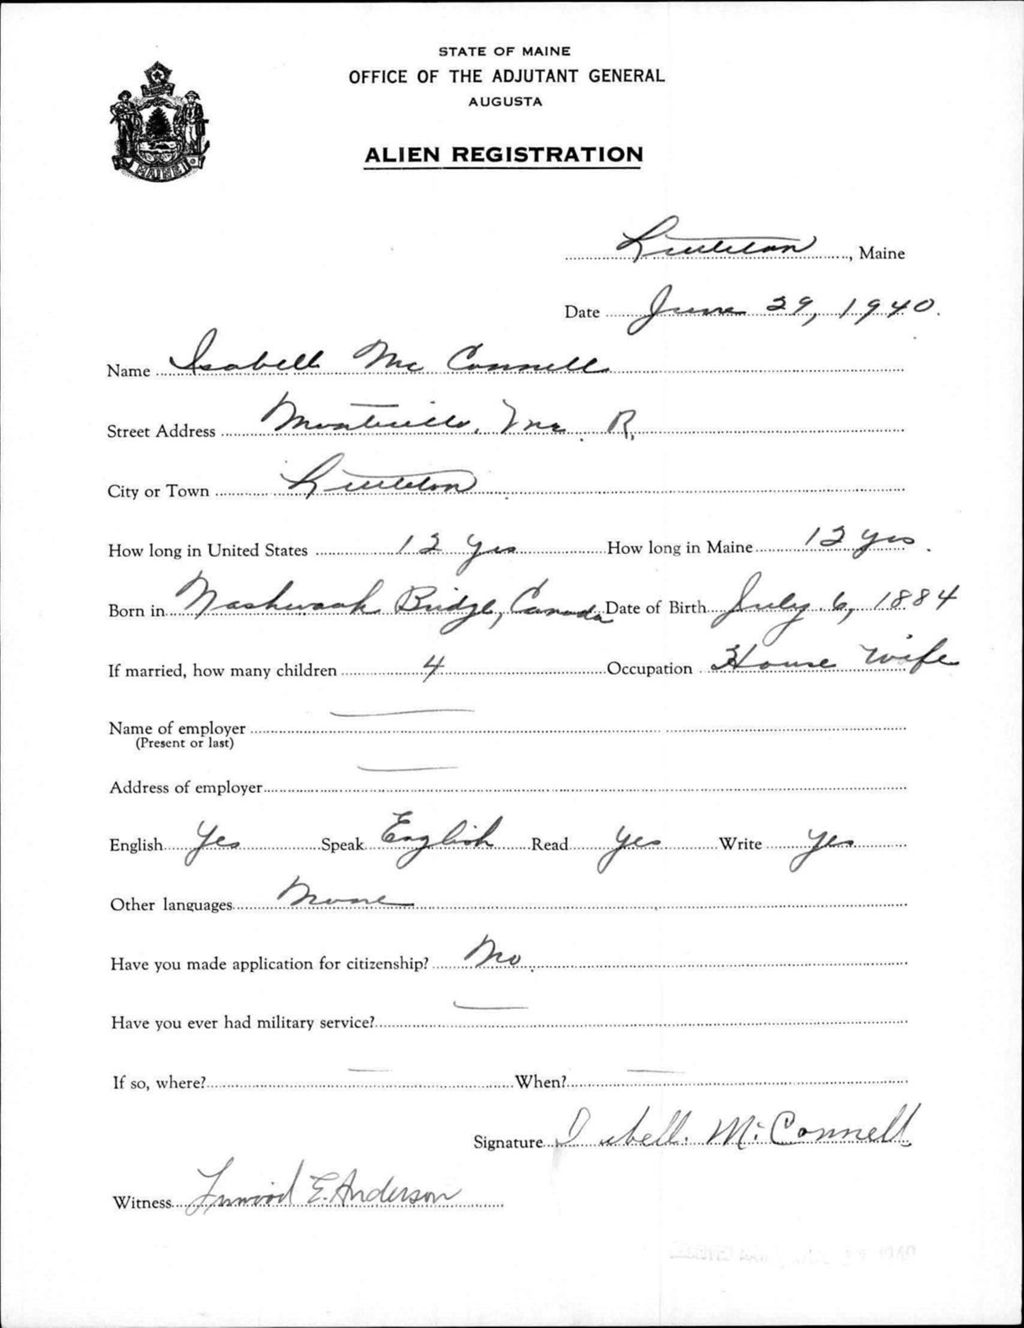 STATE OF MAINE
OFFICE OF THE ADJUTANT GENERAL
AUGUSTA
ALIEN REGISTRATION
MAINE
Littleton, Maine
Date June 29, 1940.
Name Isabell Mc Connell
Street Address Monticello, Me. R.
City or Town Littleton
How long in United States 12 yrs How long in Maine 12 yrs.
Born in Nashwaak Bridge, Canada Date of Birth July 6, 1884
If married, how many children 4 Occupation House wife
Name of employer —
(Present or last)
Address of employer —
English Yes Speak English Read yes Write yes
Other languages None
Have you made application for citizenship? No.
Have you ever had military service? —
If so, where? — When? —
Signature Isabell. McConnell
Witness E. Anderson